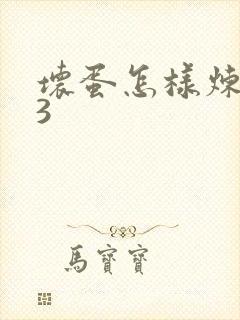 壞蛋怎樣煉
3
馬寶寶